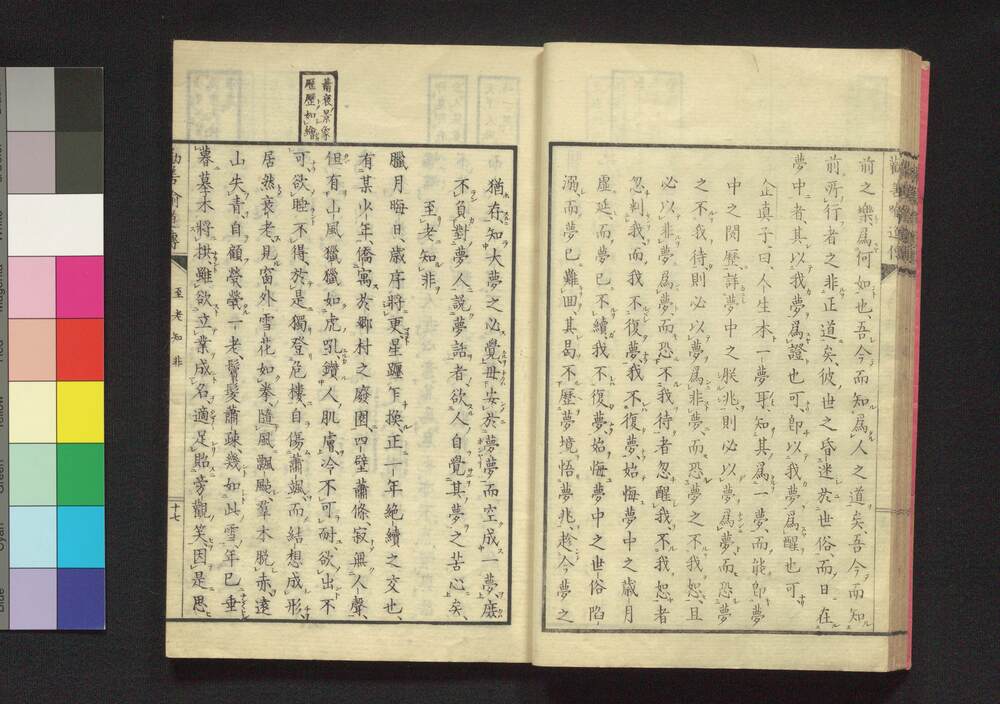 前之樂、爲何如也、吾今而知爲人之道矣、吾今而知
前所行者之非正道矣、彼世之昏迷於世俗、而日在
夢中者、其以我夢爲證也可、卽以我夢爲醒也可
企眞子曰、人生本一夢耳、知其爲一夢、而能卽夢
中之閱歷、詳夢中之朕兆、則必以夢爲夢、而恐夢
之不我待、則必以夢爲非夢、而恐夢之不我恕、且
必以非夢爲夢、而恐不我待者忽醒我、不我恕者
忽判我、而我不復夢、我不復夢、始悔夢中之歲月
虛延、而夢已不續、我不復夢、始悔夢中之世俗陷
溺、而夢已難回、其曷不歷夢境、悟夢兆、趁今夢之
猶存、知大夢之必覺、毋安於夢夢、而空成一夢、庶
不負對夢人、說夢話者、欲人自覺其夢之苦心矣、
至老知非
蕭寂景象
歷歷如繪
臘月晦日、歲序將更、星躔乍換、正一年絕續之交也、
有某少年、僑寓於鄉村之廢園、四壁蕭條、寂無人聲、
但有山風獵獵、如虎吼鑽人、肌膚冷不可耐、欲出不
可、欲睡不得、於是獨登危樓、自傷蕭颯、而結想成形、
居然衰老、見窗外雪花如拳、隨風飄颺、羣木脫赤、遠
山失靑、自顧煢煢一老、鬢髮蕭疎、幾如此雪、年已垂
暮、墓木將拱、雖欲立業成名、適足貽旁觀笑、因是思
勸善喩道傳
至老知非
十七